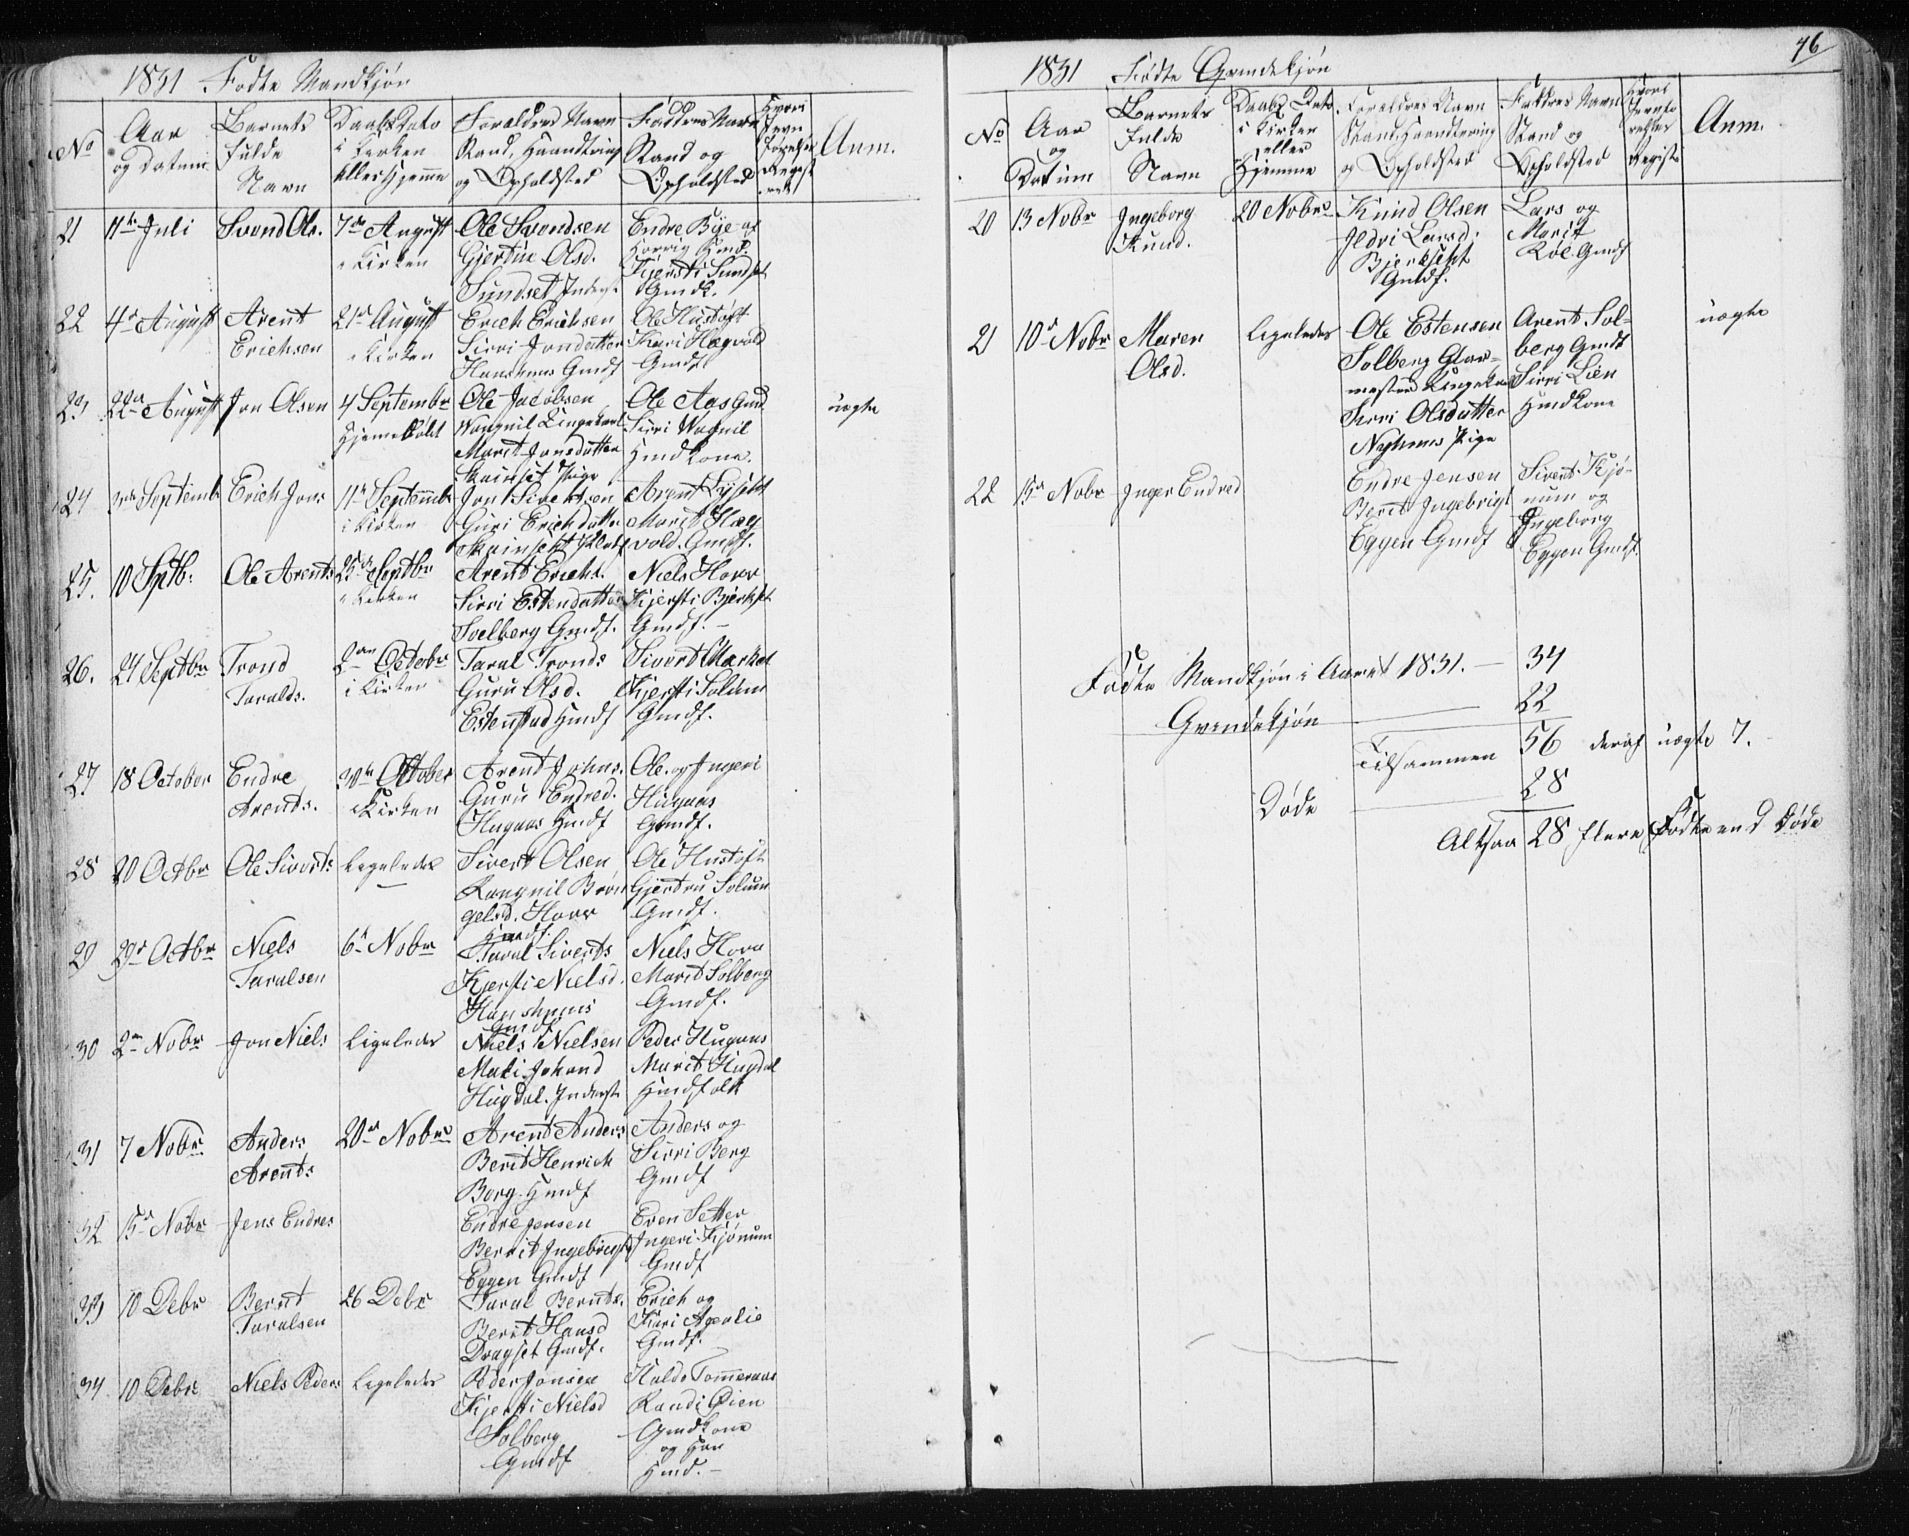 1831 Fødte Mandkjøn
No
Aar
og Datum
Barnets
fulde
Navn
Daabs Dato
i Kirken
eller Hjemme
Forældres Navn
Stand, Haandtering
og Opholdsted
Faddres Navn
Stand og
Opholdsted
Anm.
21 11te Juli Svend Ols. 7de August
i Kirken
Ole Svendsen
Gjertine Olsd.
Sundset Inderst
Endre Bye og
Kjersti Sundset
Gmdk.
22 4de August Arent
Erichsen
21de August
i Kirken
Erich Erichsen
Sirri Jonsdatter
Hanshuus Gmdf
Ole Hustoft
Kari Hægvold
Gmdf
23 22de August Jon Olsen 4 Septembr
Hjemedøbt
Ole Jacobsen
Wognil Ungekarl
Marit Jonsdatter
Skrinset Pige
Ole Aas Gmd
Sirri Wognil
Hmdkone.
uægte
24 3de Septemb. Erich Jons 11te Septembr
i Kirken
Jon Sivertsen
Guri Erichdatter
Skrinset
Arent
Marit Hæg
vold. Gmdf.
25. 10 Septb: Ole Arents 25de Septbr
i Kirken
Arent Erichs.
Sirri Estendatter
Solberg Gmdf.
Niels Horr
Kjersti Bjerkset
Gmdf. -
26. 24 Septbr Trond
Taralds.
2den Octobr
i Kirken
Taral Tronds
Guru Olsd.
Estenstad Hmdf
Sivert
Kjersti Solum
Gmdf.
27 18 October Endre
Arents.
30te October
i Kirken
Arent Johns.
Guru Endred.
Hugaas Hmdf
Ole og Ingeri
Hugaas
Gmdf.
28 20 Octbr Ole Siverts. Ligeledes
Sivert Olsen
Rangnil Bryn
gelsd. Horr
Hmdf.
Ole Hustoft
Gjertru Solum
Gmdf.
29 29de Octbr Niels
Taralsen
6te Nobr
Taral Siverts
Kjersti Nielsd.
Hanshuus
Gmdf
Niels Horr
Marit Solberg
Gmdf.
30 2den Nobr Jon Niels. Ligeledes
Niels Nielsen
Mali Johand
Hugdal. Inderst
Peder Hugaas
Marit Hugdal
Hmdfolk
31 7 Nobr. Anders
Arents
20de Nobr
Arent Anders
Berit Henrich
Berg. Hmdf
Anders og
Sirri Berg
Gmdf
32 15de Nobr Jens Endres
Endre Jensen
Berrit Ingebrigt
Eggen Gmdf
Even Setter
Ingeri Kjønum
Gmdf
33 10 Debr Bernt
Taralsen
26 Debr
Taral Bernts.
Berit Hansd
Dragset Gmdf.
Erich og
Kari Agerlie
Gmdf.
34 10 Debr Niels Peders Ligeledes
Peder Jonsen
Kjersti Nielsd
Solberg
Gmdf
Halde Tommeraas
Randi Øien
Gmdkone
og Han
Hmd. -
76
1831 Fødte Qvindekjøn
No
Aar
og
Datum
Barnets
fulde
Navn
Daabs Dato
i Kirken
eller
Hjemme
Forældres Navn
Stand, Haandtering
og Opholdsted
Faddres Navn
Stand og
Opholdsted
Anm.
20 13 Nobr Ingeborg
Knud.
20 Nobr
Knud Olsen
Ildri Larsd.
Bjerkset
Gmdf.
Lars og
Marit
Röe. Gmdf
21 10de Nobr Maren
Olsd.
Ligeledes
Ole Estensen
Solberg Glar-
mester Ungekarl
Sirri Olsdatter
Nyhuus Pige
Arent Sol-
berg Gmdf
Sirri Lien
Hmdkone
uægte
22 15de Nobr Inger Endred
Endre Jensen
Berit Ingebrigt
Eggen Gmdf
Sivert Kjø-
num og
Ingeborg
Eggen Gmdf.
Fødte Mandkjøn i Aaret 1831. - 34
Qvindekjøn 22
Tilsammen 56 deraf uægte 7.
Døde 28
Altsaa 28 flere Fødte end Døde